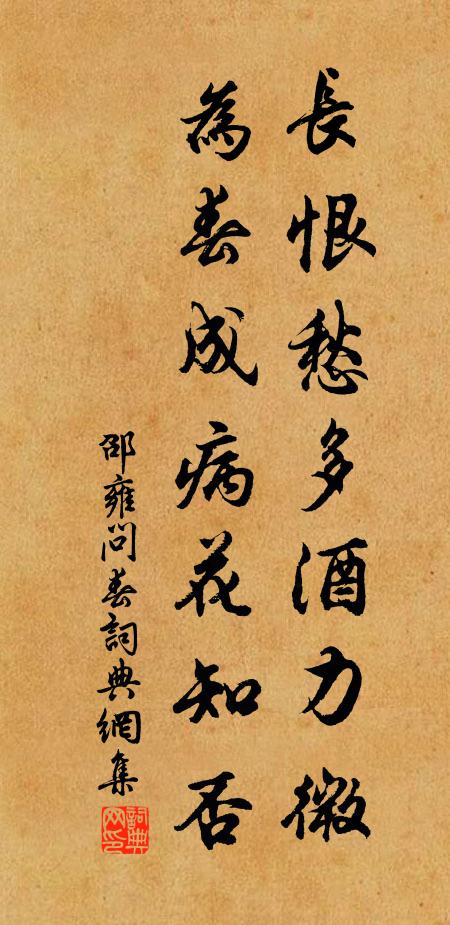 長恨愁多酒力微
為春成病花知否
邵雍問春詞典網集
詞典網印